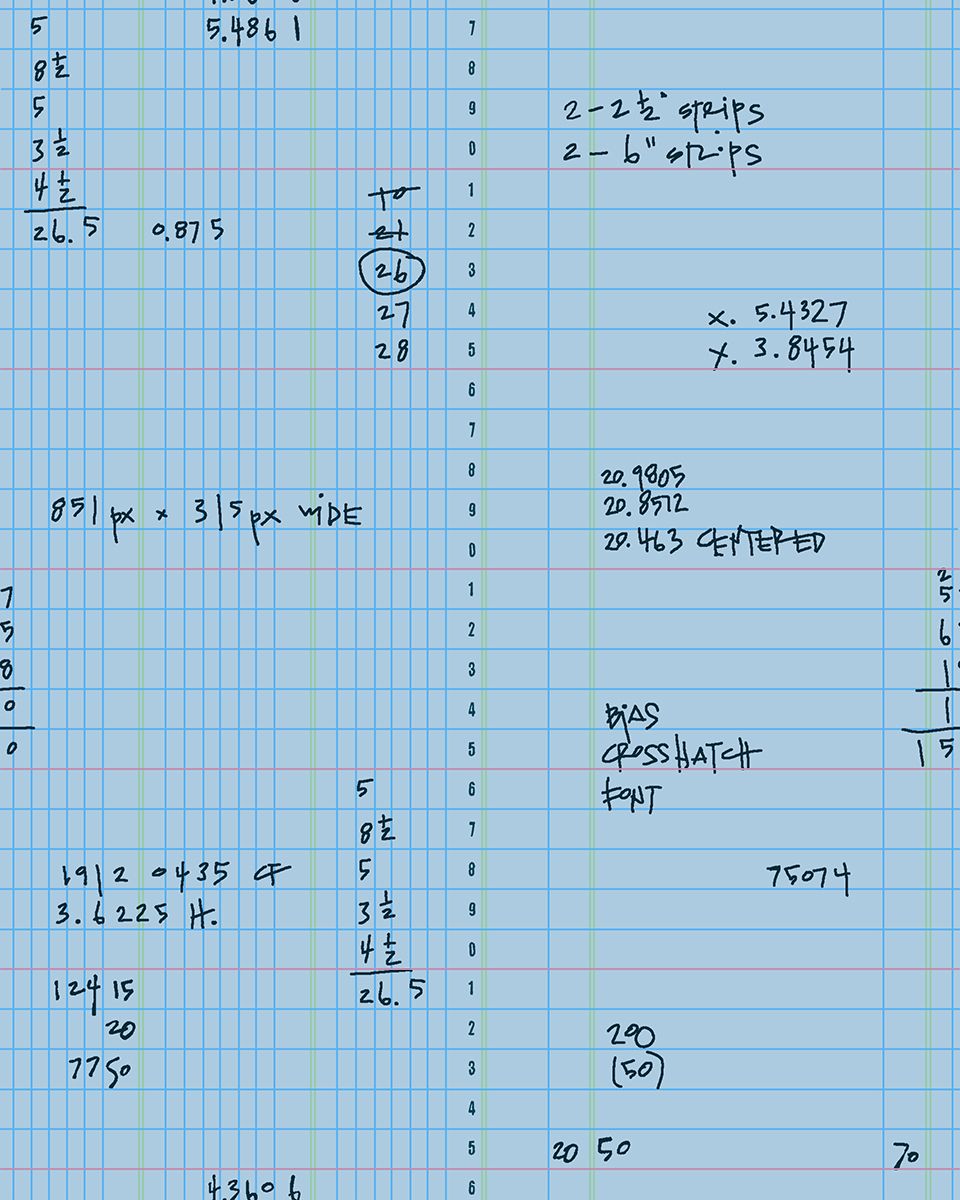 5
8 1/2
5
3 1/2
4 1/2
26.5
0.875
5.4861
10
21
26
27
28
7
8
9
0
1
2
3
4
5
6
7
8
9
0
1
2
3
4
5
6
7
8
9
0
1
2
3
4
5
6
2 - 2 1/2" strips
2 - 6" strips
x. 5.4327
y. 3.8454
851 px x 315 px WIDE
20.9805
20.8512
20.463 CENTERED
7
5
8
0
0
2
5
6
1
1
15
BIAS
CROSSHATCH
FONT
5
8 1/2
5
3 1/2
4 1/2
26.5
75074
1912 0435 CF
3.6225 H.
12415
20
7750
200
(50)
20 50
70
4.3606